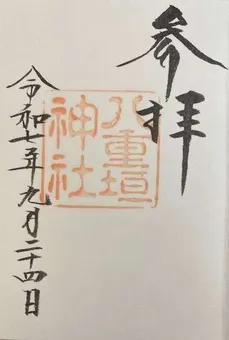 参拝
八重垣
神社
令和七年九月二十四日